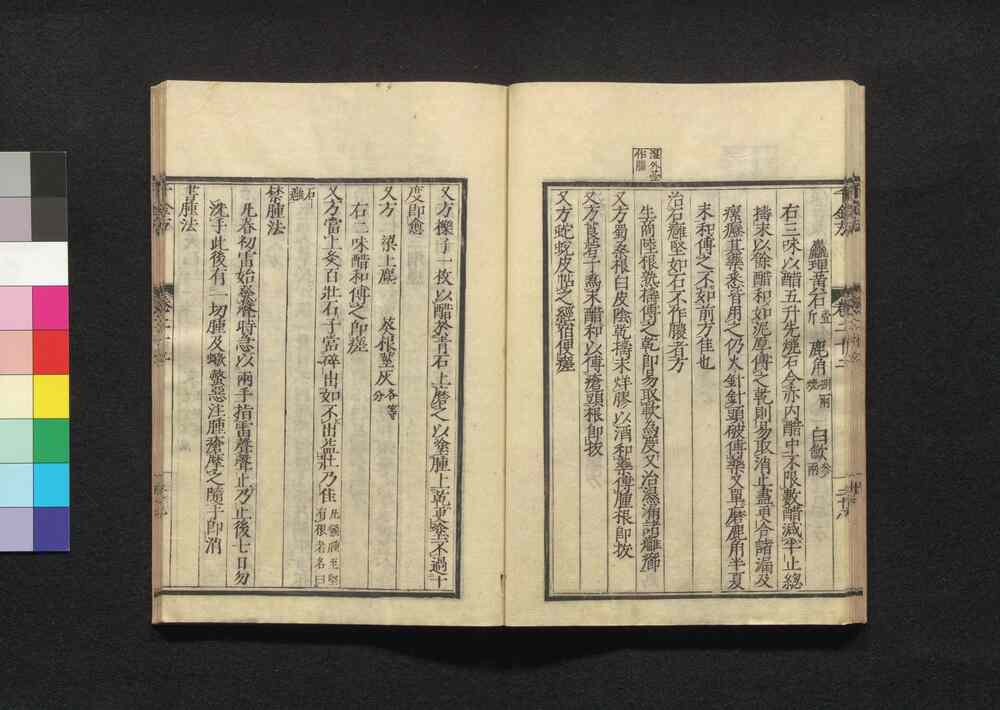 千金方
卷二十二
麤理黃石一斤 鹿角四兩燒 白蘞三兩
右三味以醋五升先燒石令赤內醋中不限數醋減半止總
擣末以餘醋和如泥厚傅之乾則易取消止盡更合諸漏及
瘰癧其藥悉皆用之仍火針針頭破傅藥又單磨鹿角半夏
末和傅之不如前方佳也
治石癰堅如石不作膿者方
生商陸根熟擣傅之乾即易取軟為度又治濕漏諸癰癤
又方蜀桑根白皮陰乾擣末烊膠以酒和藥傅腫根即拔
又方莨菪子為末醋和以傅瘡頭根即拔
又方蛇蛻皮帖之經宿便瘥
又方櫟子一枚以醋於青石上磨之以塗腫上乾更塗不過十
度即愈
又方 梁上塵 葵根莖灰各等分
右二味醋和傅之即瘥
又方當上灸百壯石子當碎出如不出益壯乃佳凡癰腫至堅有根者名曰
石癰
禁腫法
凡春初雷始發聲時急以兩手指雷聲聲止乃止後七日勿
洗手此後有一切腫及蠍螫惡注腫瘡摩之隨手即消
書腫法